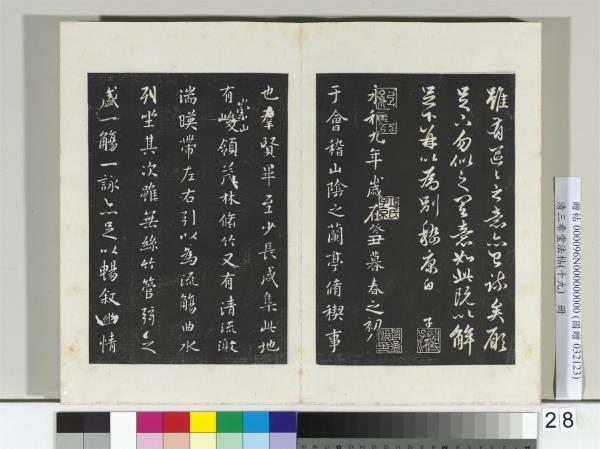 雖有區〻之意亦已疎矣願
足下勿似之其意如此既以解
足下并以為別嵇康白 子
永和九年歲在癸丑暮春之初
于會稽山陰之蘭亭脩稧事
也羣賢畢至少長咸集此地
有崇山峻領茂林脩竹又有清流激
湍暎帶左右引以為流觴曲水
列坐其次雖無絲竹管弦之
盛一觴一詠亦足以暢敘幽情
贈帖 000096N000000000 (國贈 032123)
清三希堂法帖(十九) 冊
28